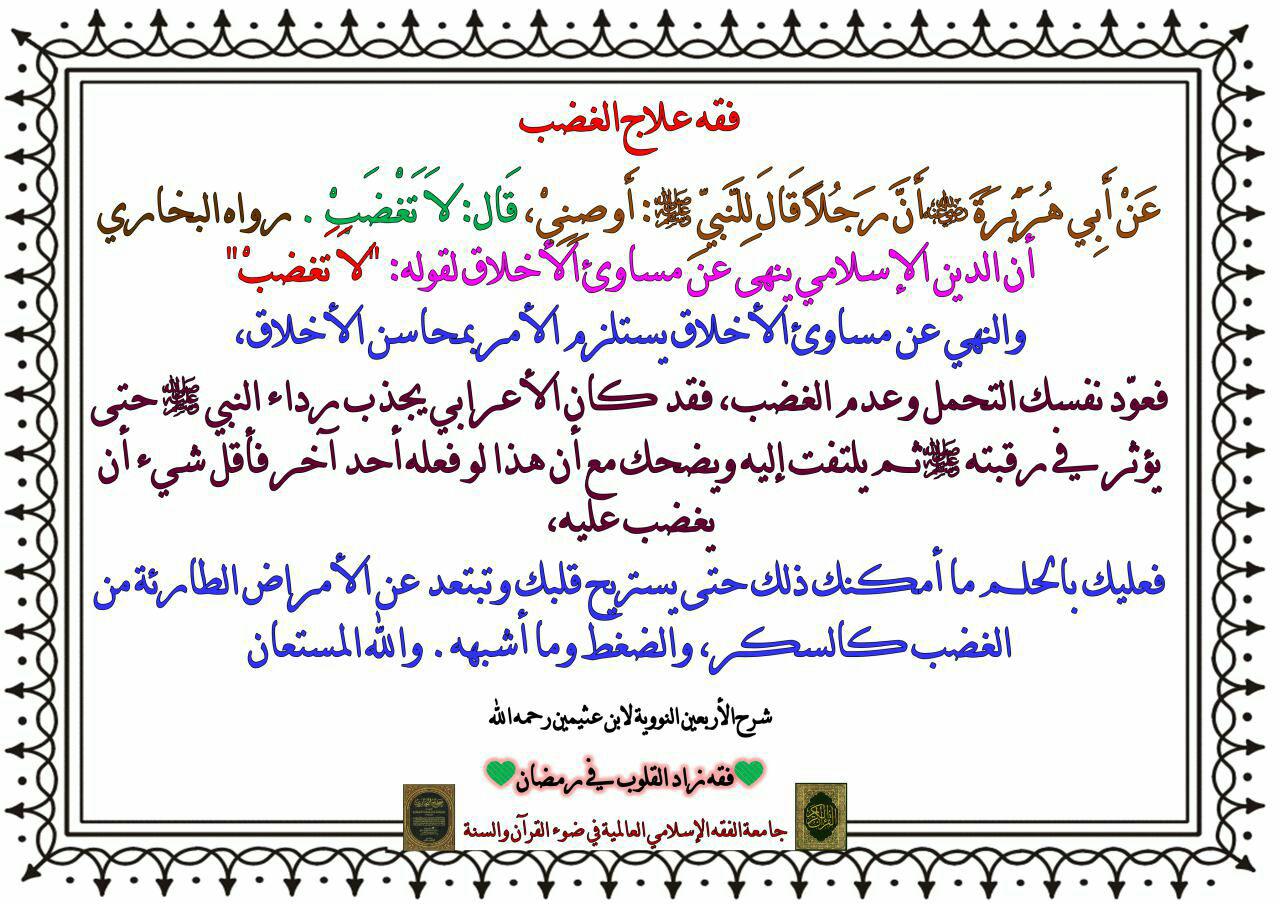 فقه علاج الغضب
عَنْ أَبِي هُرَيْرَةَ ﷺ أَنَّ رَجُلاً قَالَ لِلنَّبِيِّ ﷺ: أَوصِنِيْ، قَال: لاَ تَغْضَبْ. رواه البخاري
أن الدين الإسلامي ينهى عن مساوئ الأخلاق لقوله: "لا تغضبْ"
والنهي عن مساوئ الأخلاق يستلزم الأمر بمحاسن الأخلاق،
فعوّد نفسك التحمل وعدم الغضب، فقد كان الأعرابي يجذب رداء النبي ﷺ حتى
يؤثر في رقبته ﷺ ثم يلتفت إليه ويضحك مع أن هذا لو فعله أحد آخر فأقل شيء أن
يغضب عليه،
فعليك بالحلم ما أمكنك ذلك حتى يستريح قلبك وتبتعد عن الأمراض الطارئة من
الغضب كالسكر، والضغط وما أشبهه. والله المستعان
شرح الأربعين النووية لابن عثيمين رحمه الله
💚فقه زاد القلوب في رمضان💚
القرآن الكريم
جامعة الفقه الإسلامي العالمية في ضوء القرآن والسنة